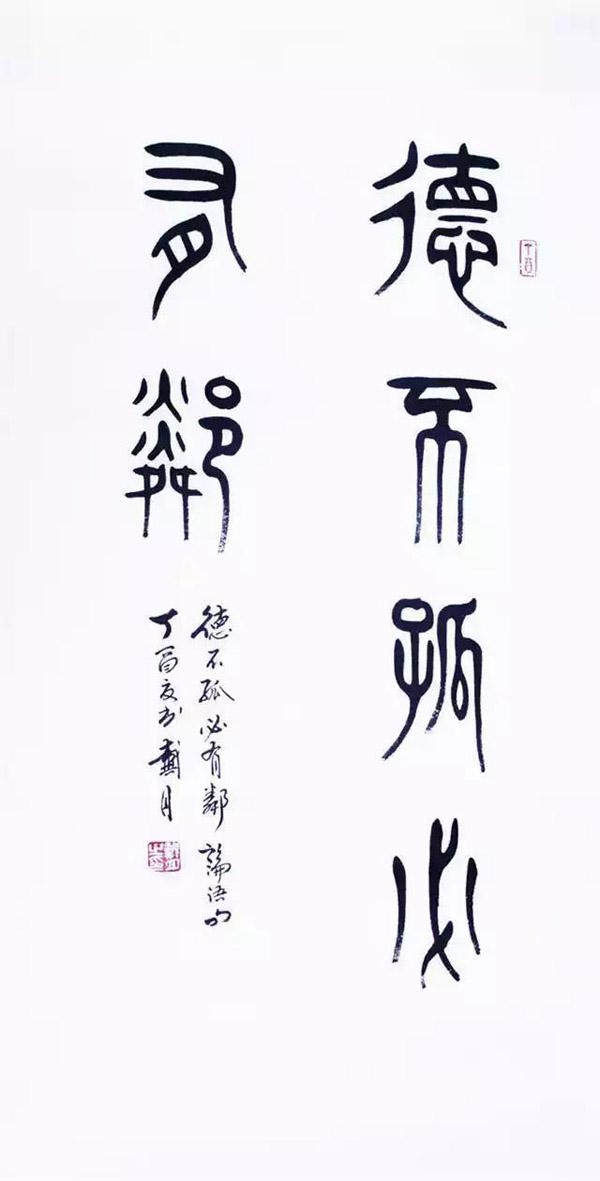 德不孤必
有鄰
德不孤必有鄰 論语句
丁酉夏书 戴月
丁酉